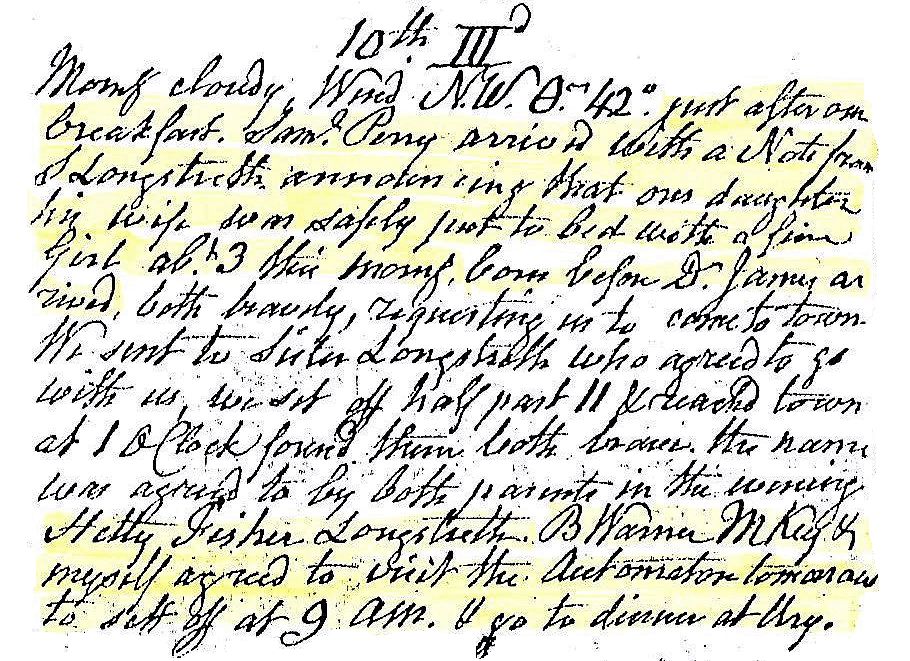 10th IIId
Morng cloudy, Wind N.W. Or 42° just after our
breakfast. Saml Perry arrived with a Note from
S Longstreth announcing that our daughter
his wife was safely put to bed with a fine
Girl abt 3 this morng, born before Dr James ar
rived, both bravely, requesting us to come to town
We sent to Sister Longstreth who agreed to go
with us, we set off half past 11 & reachd town
at 1 O Clock found them both braver. the name
was agreed to by both parents in the evening
Hetty Fisher Longstreth. B Warner M Key &
myself agreed to visit the Automaton tomorrow
to sett off at 9 AM. & go to dinner at